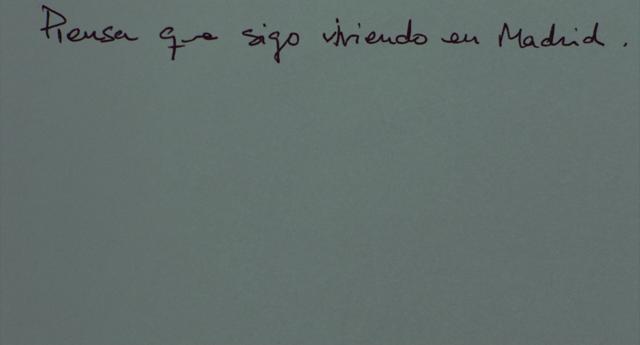 Piensa que sigo viviendo en Madrid.